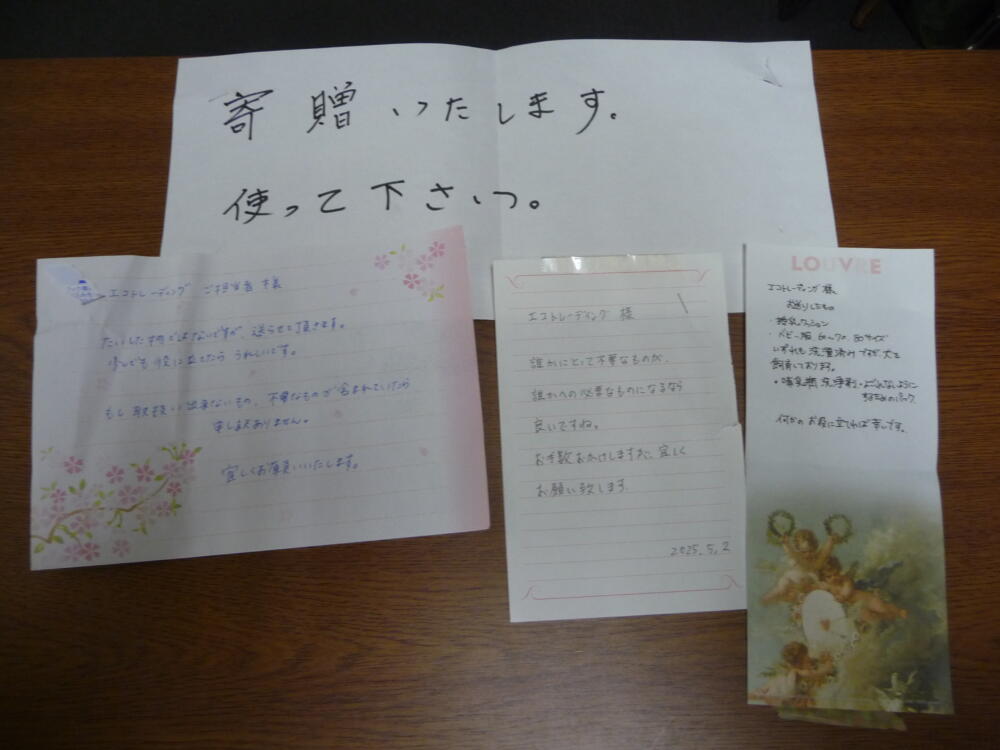 寄贈いたします。
使って下さいっ。
エコトレーディング ご担当者 様
たいした物ではないですが、送らせて頂きます。
少しでも役に立てたら うれしいです。
もし取扱い出来ないもの、不要なものが含まれていたら
申し訳ありません。
宜しくお願いいたします。
エコトレーディング 様
誰かにとって不要なものが、
誰かへの必要なものになるなら
良いですね。
お手数おかけしますが、宜しく
お願い致します。
2025.5.2
LOUVRE
エコトレーディング 様
お送りしたもの
・授乳クッション
・ベビー服 60〜70、80サイズ
いずれも洗濯済みですが、犬を
飼育しております。
・哺乳瓶 洗浄剤・よごれないように
するためのパック
何かの お役に立てれば幸いです。